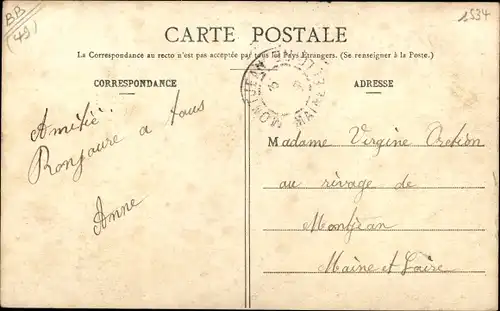 BB
(49)
1534
CARTE POSTALE
La Correspondance au recto n'est pas acceptée par tous les Pays Étrangers. (Se renseigner à la Poste.)
CORRESPONDANCE
ADRESSE
MONTJEAN
MAINE ET L
Amitié.
Ronjoure a tous
Anne
Madame Virgine
au rivage de
Montjean
Maine et Loire